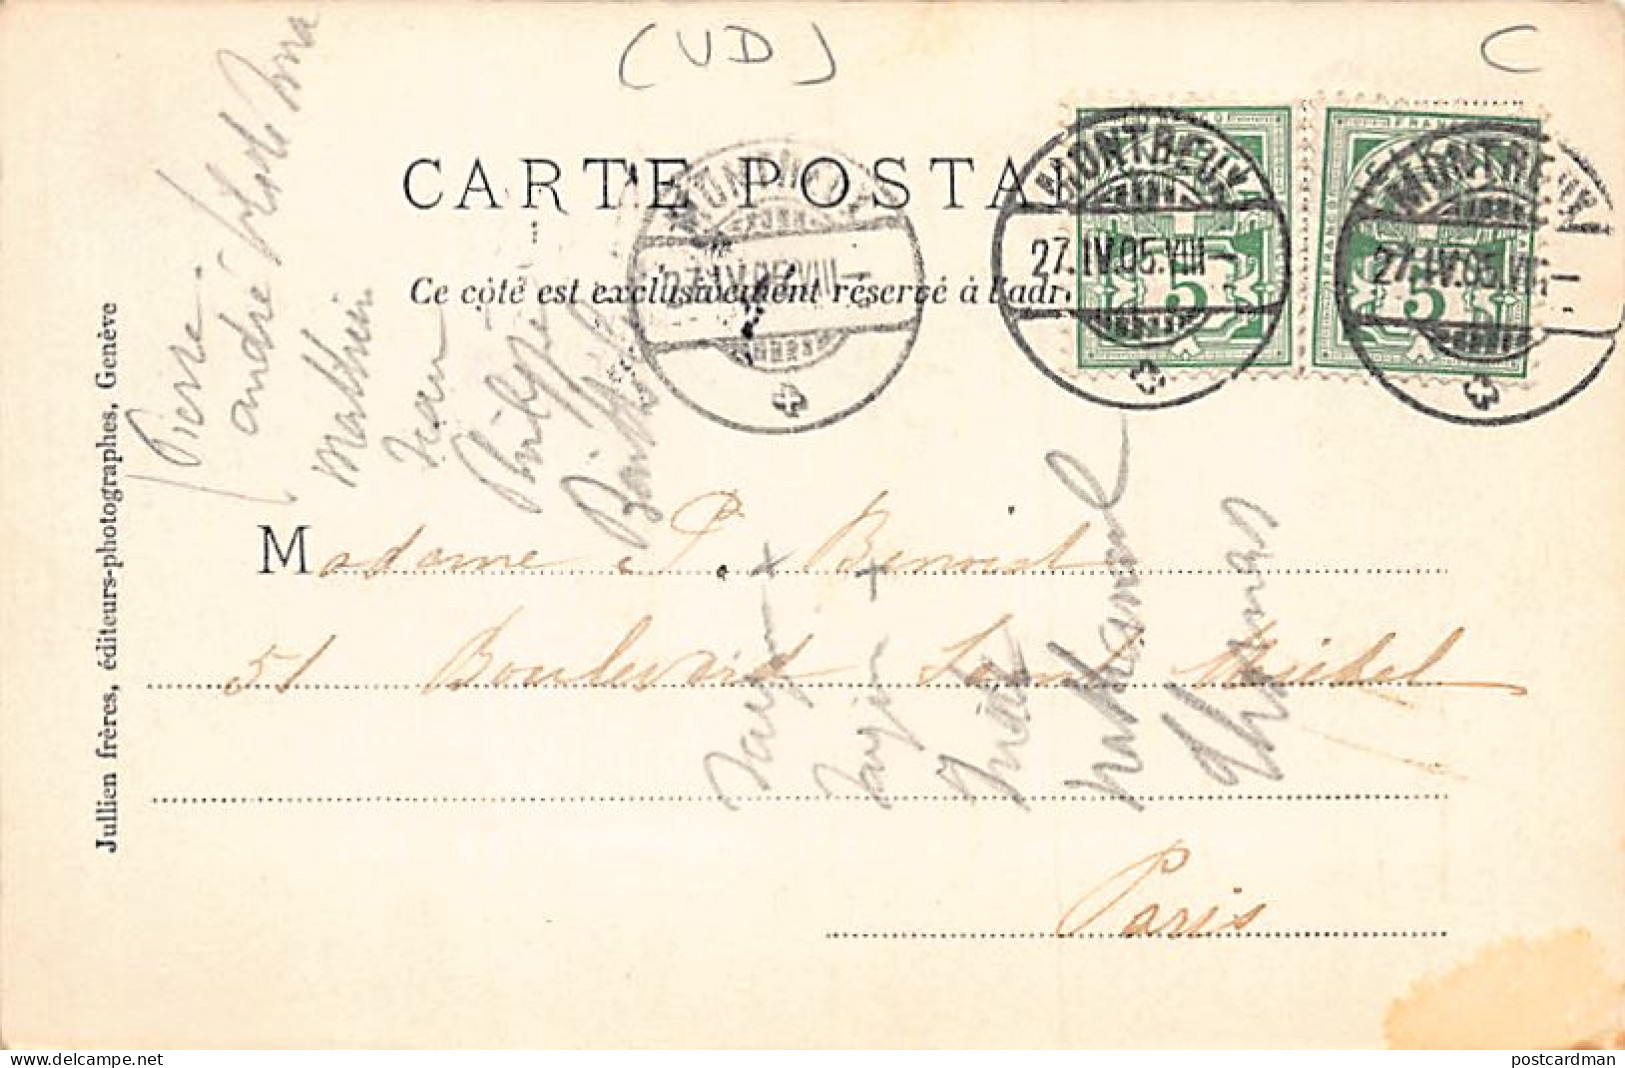 (UD)
C
CARTE POSTAL
Ce côté est exclusivement réservé à l'adr
MONTREUX
27.IV.05.VIII—
MONTREUX
27.IV.05.VIII—
5
MONTREUX
27.IV.05.VIII—
FRANCO
5
Jullien frères, éditeurs-photographes, Genève
Pierre
andré
Mathieu
Jean
Philippe
Madame P. Benoist
51 Boulevard Saint Michel
Paris
Nathanael
Thomas
postcardman